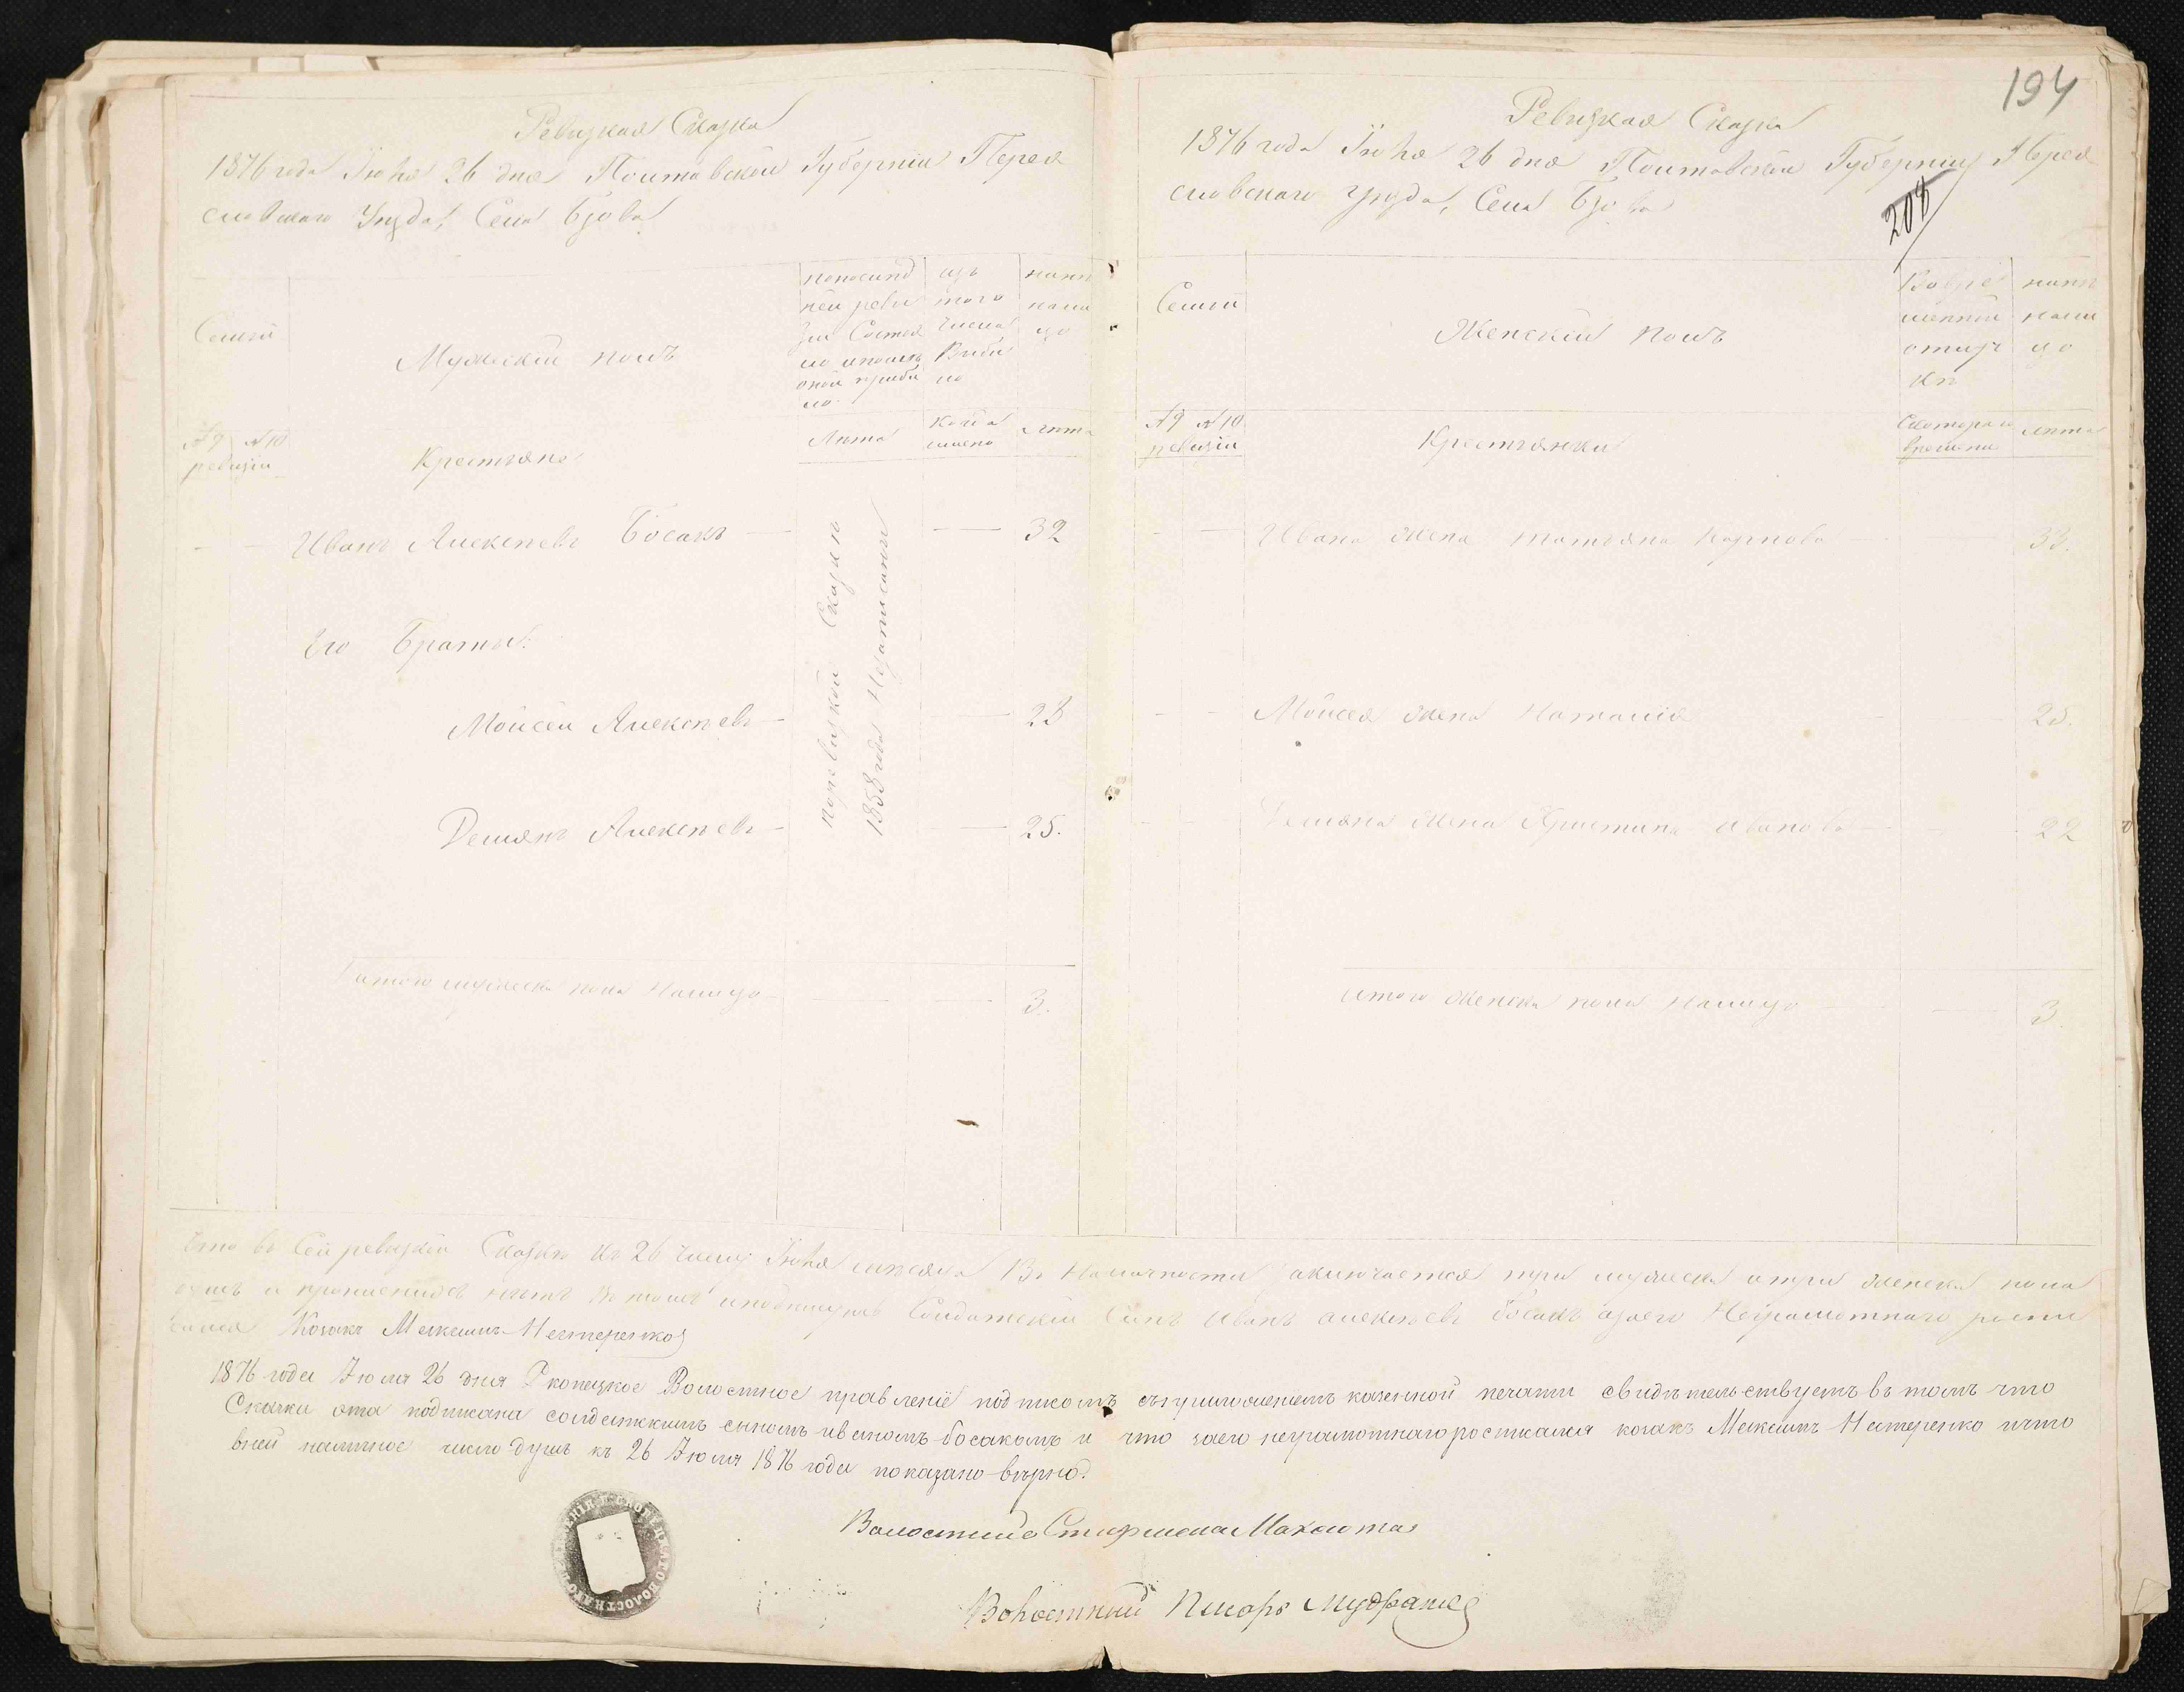 Ревизкая Сказка
1876 года Июня 26 дня Полтавской Губерніи Перея
славскаго Уезда, Села Бзова
Семьи
Мужескій полъ
По послед
ней реви
зіи Состоя
ло и после
оной прибы
ло
изъ
того
числа
Выбы
ло
ныне
нали
цо
№ 9 № 10
ревизіи
Крестьяне
Лета
Когда
имено
Лета
Иванъ Алексеевъ Босакъ 32
Его братья:
Мойсей Алексеевъ 28
Демянъ Алексеевъ 25.
По ревизкой Сказке
1858 года Незаписаны
итого мужеска пола Налицо 3.
194
Ревизкая Сказка
1876 года Июня 26 дня Полтавской Губерніи Перея
славскаго Уезда, Села Бзова
208
Семьи
Женскій полъ
Во вре
менной
отлуч
ке
ныне
нали
цо
№ 9 № 10
ревизіи
Крестьянки
С котораго
времени
Лета
Ивана жена Татьяна Карпова 33.
Мойсея жена Наталія 25.
Демяна жена Христина Иванова 22
итого женска пола Налицо 3
Что в Сей ревизкой Сказке къ 26 числу Июня месяца Въ Наличности заключается три мужеска и три женска пола
душъ и прописныхъ нетъ в томъ и подпишусь Солдатскій Сынъ Иванъ Алексеевъ Босакъ а за его Неграмотнаго роспи
сался Козакъ Максимъ Нестеренко
1876 года Июля 26 дня Скопецкое Волостное правленіе подписомъ съ приложениемъ казенной печати свидетельствуетъ въ томъ что
Сказка эта подписана солдатскимъ сыномъ иваномъ босакомъ и что за его неграмотнаго росписался козакъ Максимъ Нестеренко и что
в ней наличное число душъ къ 26 Июля 1876 года показано верно.
Волостный Старшина Махотка
Волостный Писарь Мудрако